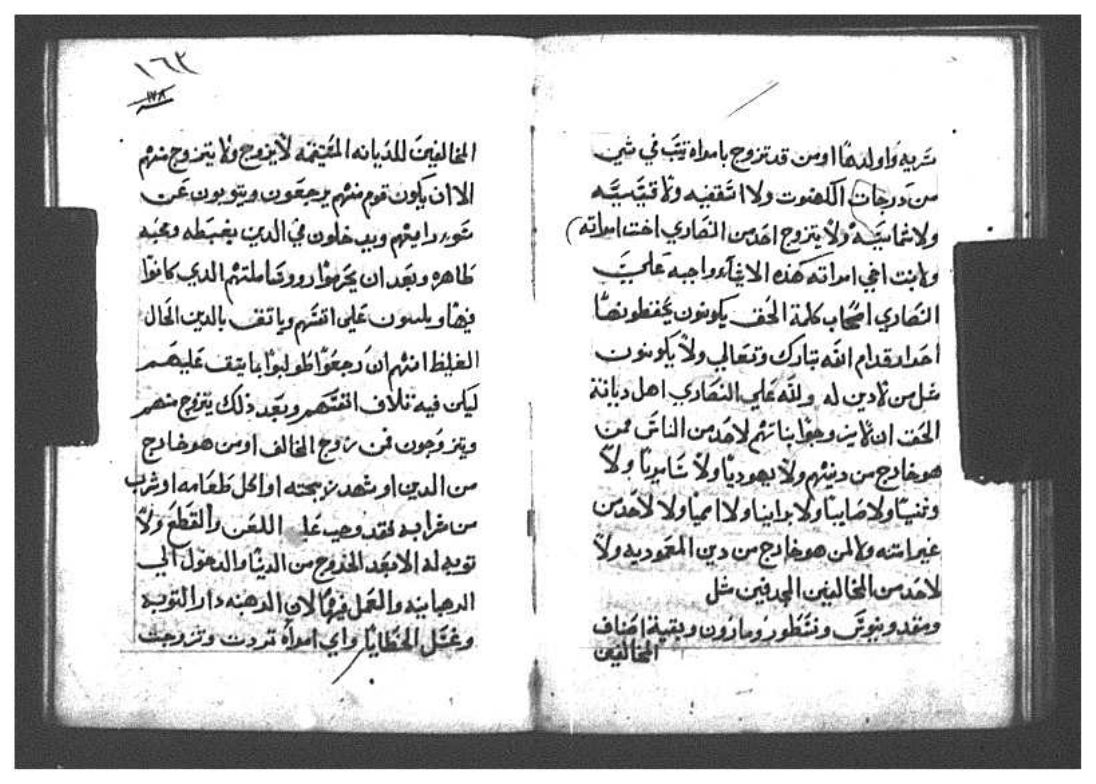 سريه واولدها اومن قد تزوج بامراه تيب في شي
من درجات الكهنوت ولا اسقفيه ولا قسيسيه
ولا شماسيه ولا يتزوج احد من النصاري اخت امراته
ولا بنت اخي امراته هذه الاشياء واجبه علي
النصاري اصحاب كلمة الحق يكونون يحفظونها
احدا قدام الله تبارك وتعالي ولا يكونون
مثل من لا دين له ولله علي النصاري اهل ديانة
الحق ان لا يزوجوا بناتهم لاحد من الناس ممن
هو خارج من دينهم ولا يهوديا ولا سامريا ولا
وثنيا ولا صابيا ولا برانيا ولا اميا ولا لاحد من
غير امته ولا لمن هو خارج من دين المعموديه ولا
لاحد من المخالفين المجدفين مثل
ومقدونيوس ونسطور ومارون وبقية اصناف
المخالفين
١٦٢
١٧٨
المخالفين للديانه المستقيمه لا يزوج ولا يتزوج منهم
الا ان يكون قوم منهم يرجعون ويتوبون عن
سوء رايهم ويدخلون في الدين بغبطه ومحبه
طاهره وبعد ان يحرموا روسا ملتهم الذي كانوا
فيها ويلبسون علي انفسهم وياتق بالدين الحال
الغليظ انهم ان رجعوا طولبوا بما يتفق عليهم
ليكن فيه تلاف انفسهم وبعد ذلك يتزوج منهم
ويتزوجون فمن زوج المخالف اومن هو خارج
من الدين او شهد زيجته او اكل طعامه او شرب
من شرابه فقد وجب عليه اللعن والقطع ولا
توبه له الا بعد الخروج من الدنيا والدخول الي
الرهبانيه والعمل فيها لان الرهبنه دار التوبه
وغسل الخطايا واي امراه تردت وتزوجت